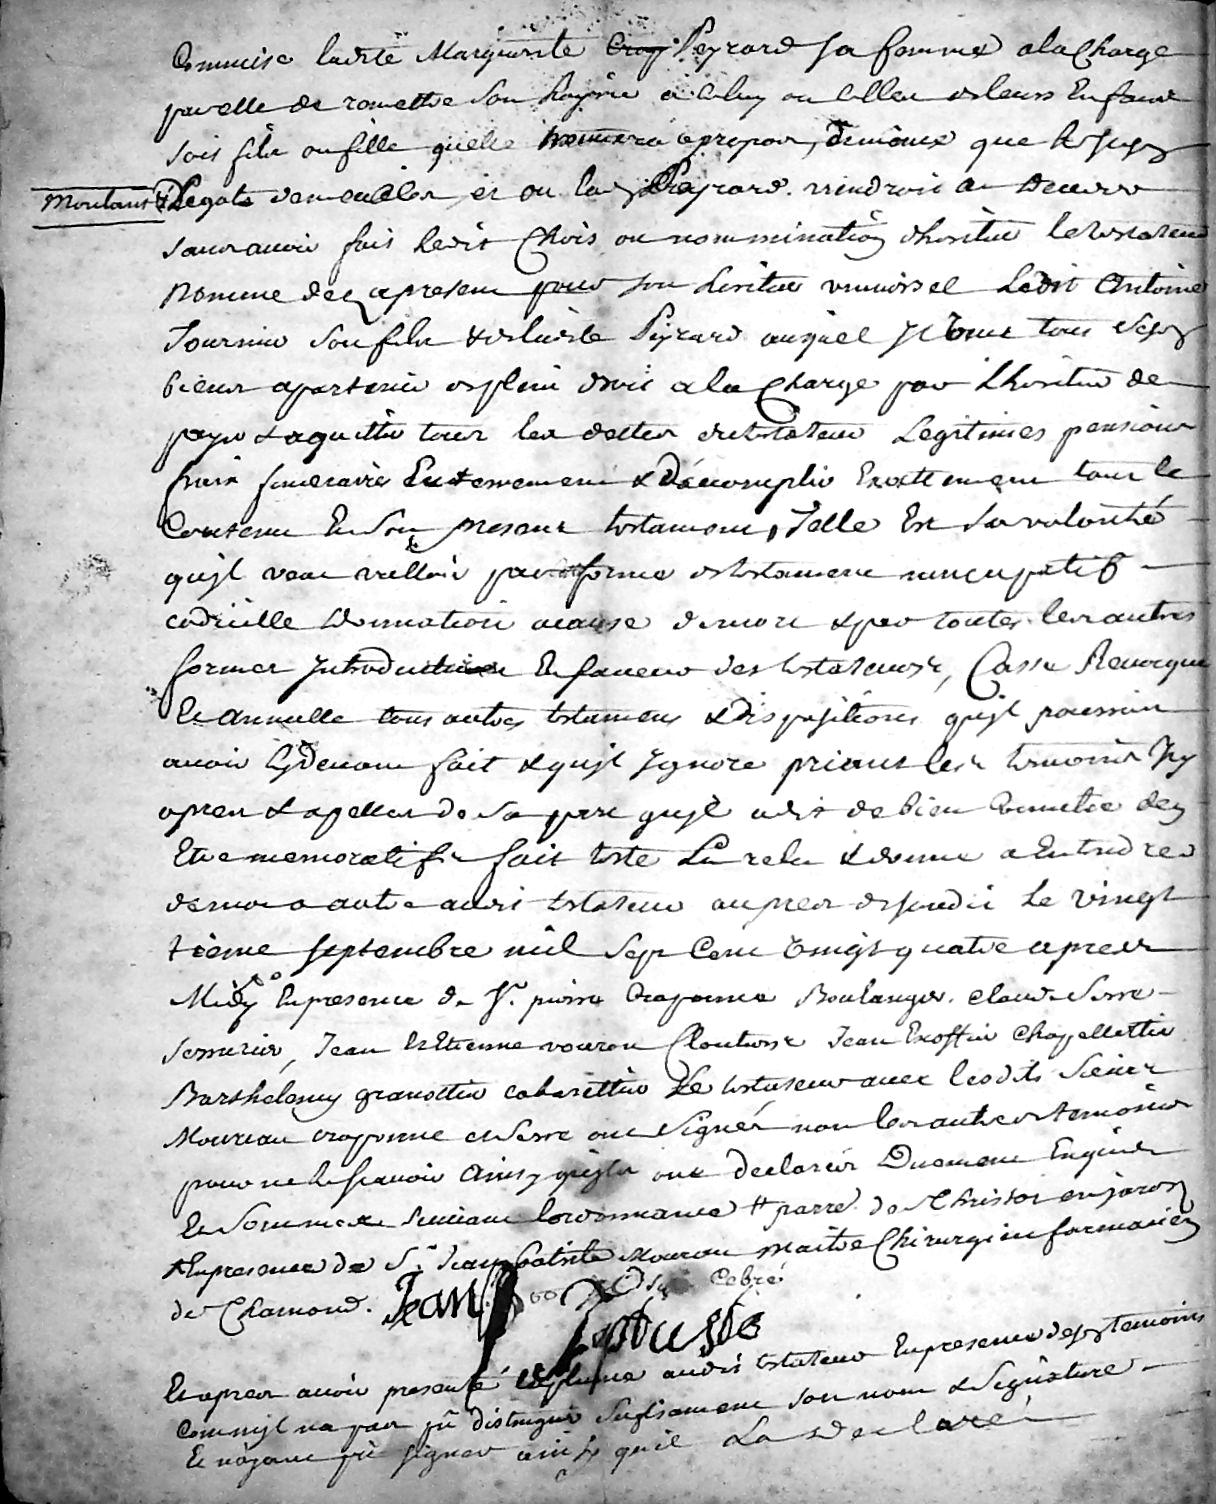 Commise ladite Marguerite Peyrard sa femme a la Charge
par elle de remettre son hoyrie a celuy ou celle de leurs Enfans
soit fils ou fille quelle trouvera apropos, de meme que lesd
Montant Legats demeubles, et ou lad Peyrard viendroit a deceder
sans avoir fait ledit Choix ou nommination dheritier le testateur
nomme des apresent pour son heritier universel ledit Antoine
Journoud son fils & de ladite Peyrard auquel Il donne tous sesd
biens apartenir de plein droit a la Charge par Lheritier de
payer & aquitter tous les dettes du testateur Legitimes pensions
frais funeraires Enterrement & Daccomplir Exactement tout le
Contenu En son present testament, Telle Est sa volonté
quil veut valloir par forme de testament nuncupatif
codicille donnation acause de mort & par toutes les autres
formes Introduites En faveur des testateurs, Casse Revoque
Et annulle tous autres testaments & Dispositions quil pourroit
avoir Cy devant fait & quil Ignore priant les temoins Icy
apres & apelles de sa part quil a dit de bien Connoitre den
Etre memoratifs fait leu relu & donné a Entendre
de mot a autre audit testateur au pres de jeudi le vingt
tieme septembre mil sept Cent vingt quatre apres
Midy En presence de Sr. pierre Craponne Boulanger. claude Serre
serrurier, Jean Estienne vouron Cloutier Jean Exoffier Chapellettier
Barthelemy granottier cabarettier Le testateur avec lesdits Sieurs
Moureau craponne et Serre ont Signés non les autres temoins
pour ne le scavoir Ainsy quils ont declarés Duement Enquis
Et Sommes suivant lordonnance # parre. de St Christot en jarest
& En presence de Sr. Jean batiste Mourau maitre Chirurgien
de St Chamond. Jean
batiste
Et apres avoir presenté la plume audit testateur En presence desd temoins
Comm il na pas pû distinguer sufisament son nom & Signature
Et nayant pû signer ainsy quil La Declaré